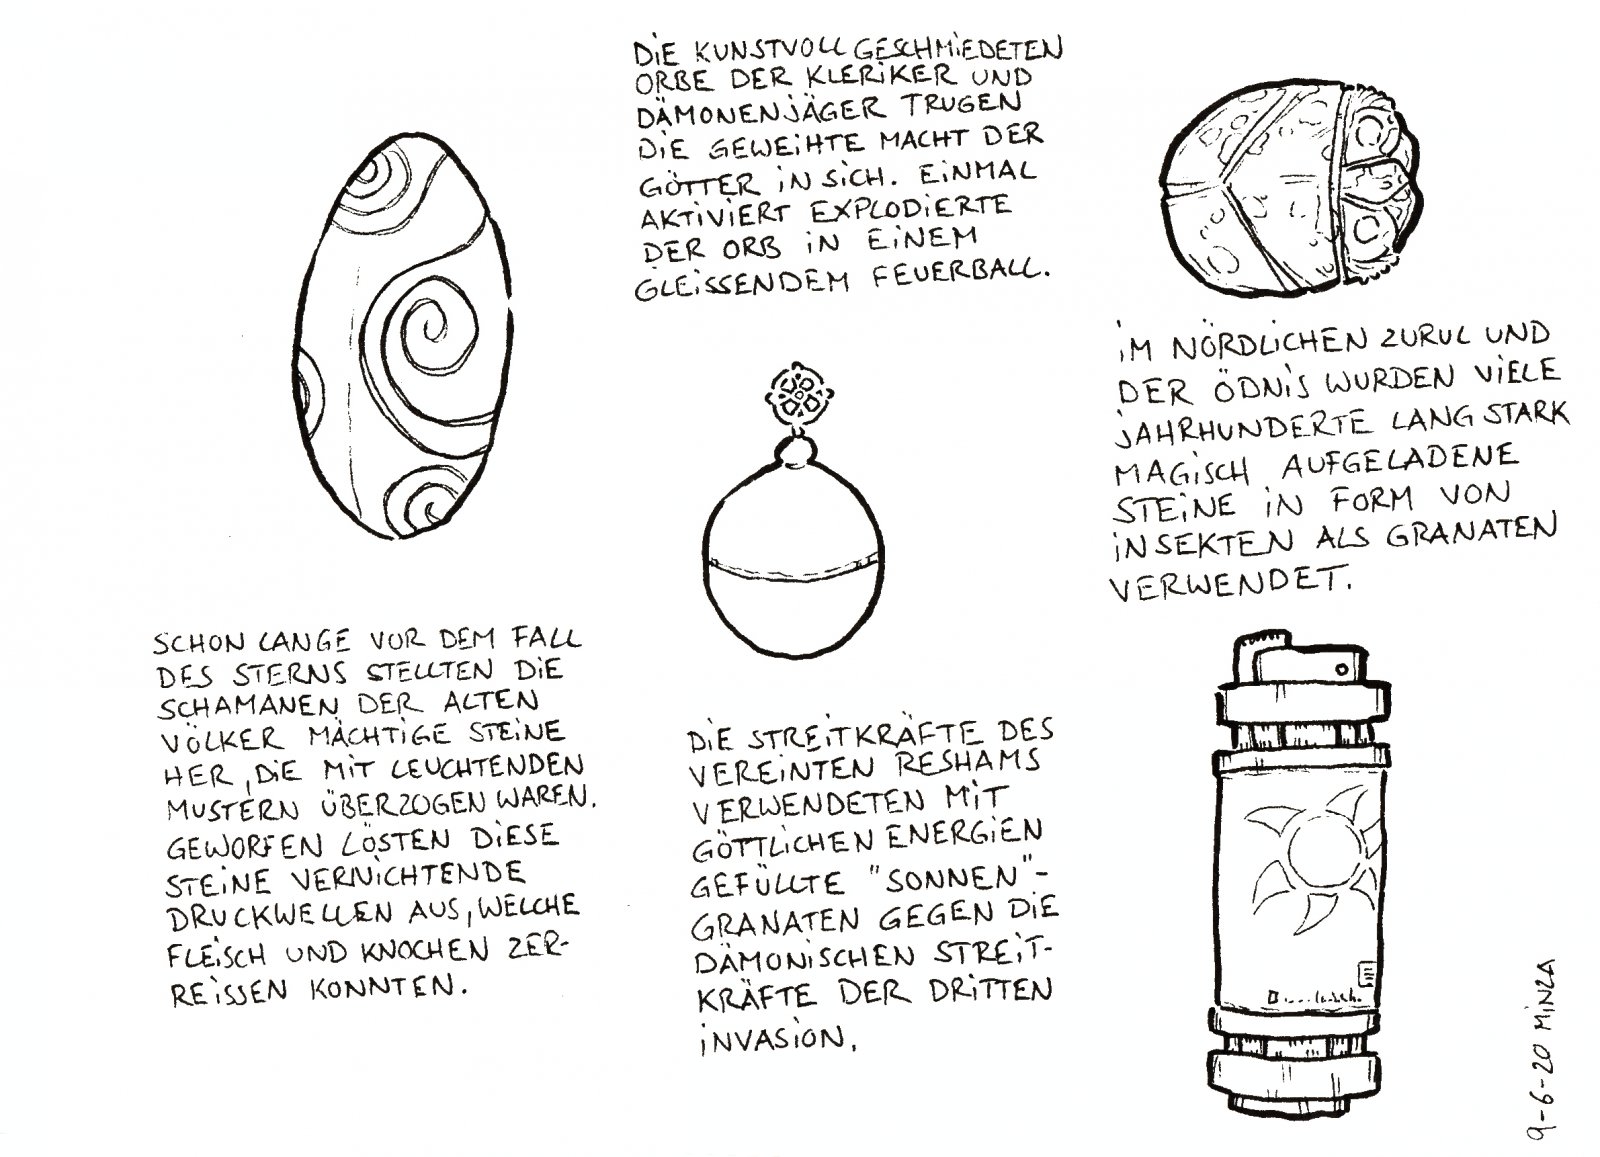 DIE KUNSTVOLL GESCHMIEDETEN
ORBE DER KLERIKER UND
DÄMONENJÄGER TRUGEN
DIE GEWEIHTE MACHT DER
GÖTTER IN SICH. EINMAL
AKTIVIERT EXPLODIERTE
DER ORB IN EINEM
GLEISSENDEM FEUERBALL.
IM NÖRDLICHEN ZURUL UND
DER ÖDNIS WURDEN VIELE
JAHRHUNDERTE LANG STARK
MAGISCH AUFGELADENE
STEINE IN FORM VON
INSEKTEN ALS GRANATEN
VERWENDET.
SCHON LANGE VOR DEM FALL
DES STERNS STELLTEN DIE
SCHAMANEN DER ALTEN
VÖLKER MÄCHTIGE STEINE
HER, DIE MIT LEUCHTENDEN
MUSTERN ÜBERZOGEN WAREN.
GEWORFEN LÖSTEN DIESE
STEINE VERNICHTENDE
DRUCKWELLEN AUS, WELCHE
FLEISCH UND KNOCHEN ZER-
REISSEN KONNTEN.
DIE STREITKRÄFTE DES
VEREINTEN RESHAMS
VERWENDETEN MIT
GÖTTLICHEN ENERGIEN
GEFÜLLTE "SONNEN"-
GRANATEN GEGEN DIE
DÄMONISCHEN STREIT-
KRÄFTE DER DRITTEN
INVASION.
9-6-20 MINZA